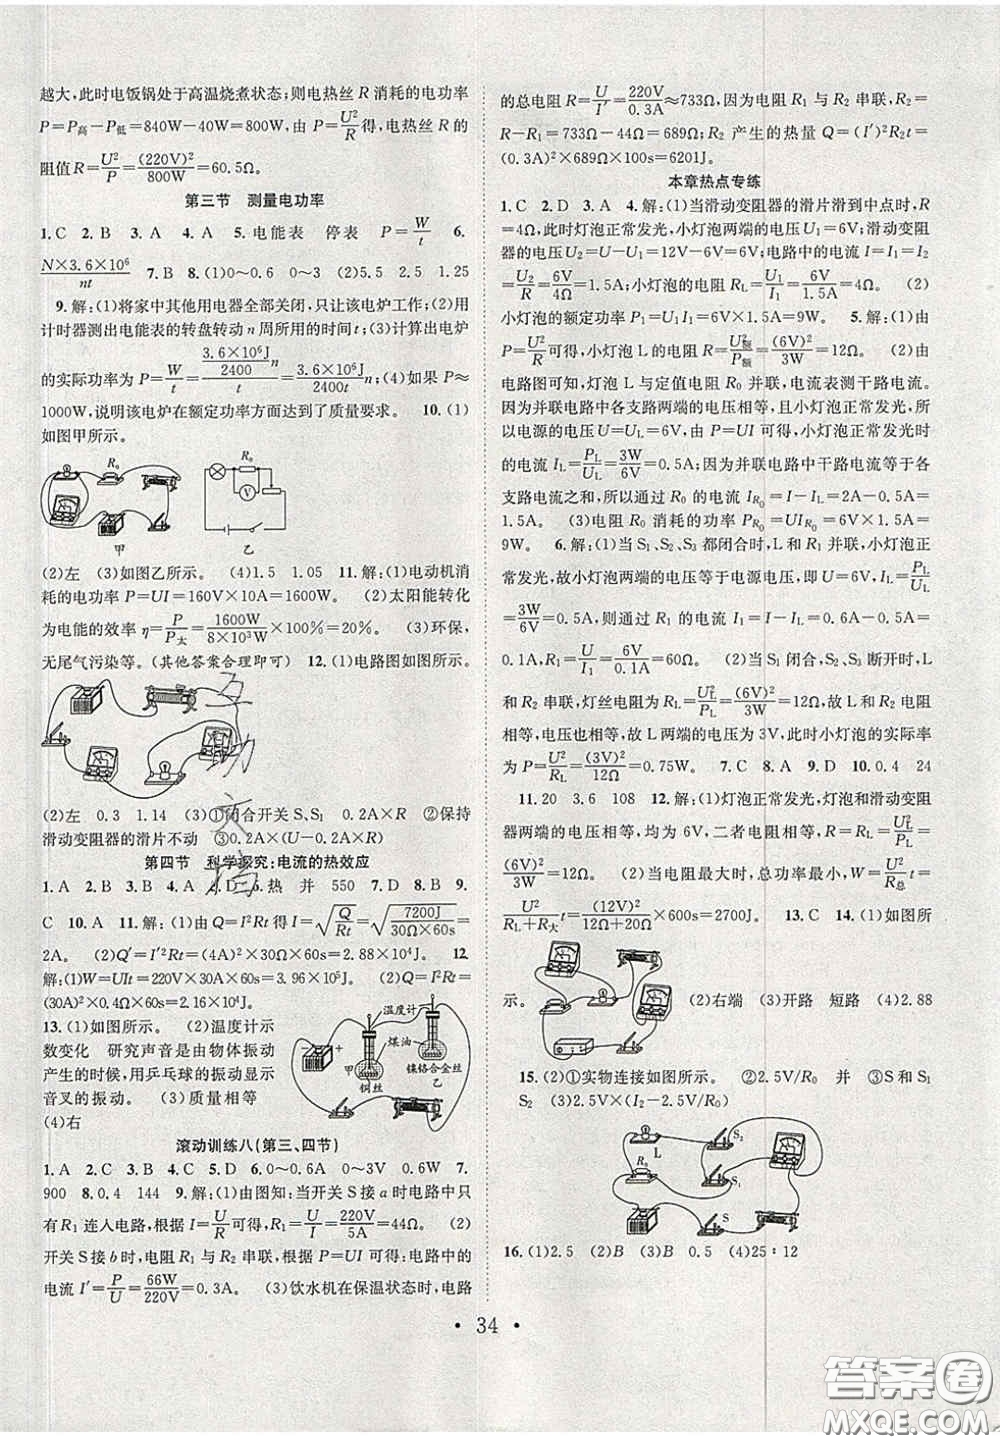 越大，此时电饭锅处于高温烧煮状态；则电热丝 R 消耗的电功率
P=P高－P低=840W－40W=800W，由 P=U²/R 得，电热丝 R 的
阻值 R=U²/P=(220V)²/800W=60.5Ω。
第三节 测量电功率
1.C 2.B 3.A 4.A 5.电能表 停表 P=W/t 6.
N×3.6×10⁶/nt 7.B 8.(1)0～0.6 0～3 (2)5.5 2.5 1.25
9.解：(1)将家中其他用电器全部关闭，只让该电炉工作；(2)用
计时器测出电能表的转盘转动 n 周所用的时间 t；(3)计算出电炉
的实际功率为 P=W/t=(3.6×10⁶J/2400)n/t=3.6×10⁶J/2400t n；(4)如果 P≈
1000W，说明该电炉在额定功率方面达到了质量要求。 10.(1)
如图甲所示。
R₀ R₀
V
甲 乙
(2)左 (3)如图乙所示。 (4)1.5 1.05 11.解：(1)电动机消
耗的电功率 P=UI=160V×10A=1600W。 (2)太阳能转化
为电能的效率 η=P/P太=1600W/8×10³W×100%=20%。 (3)环保，
无尾气污染等。(其他答案合理即可) 12.(1)电路图如图所示。
(2)左 0.3 1.14 (3)①闭合开关 S、S₁ 0.2A×R ②保持
滑动变阻器的滑片不动 ③0.2A×(U－0.2A×R)
第四节 科学探究：电流的热效应
1.A 2.B 3.A 4.A 5.D 6.热 并 550 7.B 8.B 9.
C 10.A 11.解：(1)由 Q=I²Rt 得 I=√(Q/Rt)=√(7200J/30Ω×60s)=
2A。 (2)Q′=I′²Rt=(4A)²×30Ω×60s=2.88×10⁴J。 12.
解：(1)W=UIt=220V×30A×60s=3.96×10⁵J (2)Q=I²Rt=
(30A)²×0.4Ω×60s=2.16×10⁴J。
13.(1)如图所示。 (2)温度计示
数变化 研究声音是由物体振动
产生的时候，用乒乓球的振动显示
音叉的振动。 (3)质量相等
(4)右
温度计
煤油
甲 镍铬合金丝
铜丝 乙
滚动训练八(第三、四节)
1.A 2.C 3.B 4.C 5.D 6.0～0.6A 0～3V 0.6W 7.
900 8.0.4 144 9.解：(1)由图知：当开关 S 接 a 时电路中只
有 R₁ 连入电路，根据 I=U/R 可得，R₁=U/I=220V/5A=44Ω。 (2)
开关 S 接 b 时，电阻 R₁ 与 R₂ 串联，根据 P=UI 可得：电路中的
电流 I′=P/U=66W/220V=0.3A。 (3)饮水机在保温状态时，电路
的总电阻 R=U/I′=220V/0.3A≈733Ω，因为电阻 R₁ 与 R₂ 串联，R₂=
R－R₁=733Ω－44Ω=689Ω；R₂ 产生的热量 Q=(I′)²R₂t=
(0.3A)²×689Ω×100s=6201J。
本章热点专练
1.C 2.D 3.A 4.解：(1)当滑动变阻器的滑片滑到中点时，R
=4Ω，此时灯泡正常发光，小灯泡两端的电压 U₁=6V；滑动变阻
器的电压 U₂=U－U₁=12V－6V=6V；电路中的电流 I=I₁=I₂
=U₂/R=6V/4Ω=1.5A；小灯泡的电阻 RL=U₁/I₁=6V/1.5A=4Ω。 (2)
小灯泡的额定功率 P₁=U₁I₁=6V×1.5A=9W。 5.解：(1)由
P=U²/R 可得，小灯泡 L 的电阻 R=U²额/P额=(6V)²/3W=12Ω。 (2)由
电路图可知，灯泡 L 与定值电阻 R₀ 并联，电流表测干路电流。
因为并联电路中各支路两端的电压相等，且小灯泡正常发光，所
以电源的电压 U=UL=6V；由 P=UI 可得，小灯泡正常发光时
的电流 IL=PL/UL=3W/6V=0.5A；因为并联电路中干路电流等于各
支路电流之和，所以通过 R₀ 的电流 IR₀=I－IL=2A－0.5A=
1.5A。 (3)电阻 R₀ 消耗的功率 PR₀=UIR₀=6V×1.5A=
9W。 6.解：(1)当 S₁、S₂、S₃ 都闭合时，L 和 R₁ 并联，小灯泡正
常发光，故小灯泡两端的电压等于电源电压，即 U=6V；IL=PL/UL
=3W/6V=0.5A，则通过 R₁ 的电流 I₁=I－IL=0.6A－0.5A=
0.1A，R₁=U/I₁=6V/0.1A=60Ω。 (2)当 S₁ 闭合，S₂、S₃ 断开时，L
和 R₂ 串联，灯丝电阻 RL=U²L/PL=(6V)²/3W=12Ω，故 L 和 R₂ 电阻
相等，电压也相等，故 L 两端的电压为 3V，此时小灯泡的实际率
为 P=U²/RL=(3V)²/12Ω=0.75W。 7.C 8.A 9.D 10.0.4 24
11.20 3.6 108 12.解：(1)灯泡正常发光，灯泡和滑动变阻
器两端的电压相等，均为 6V，二者电阻相等，R=RL=U²L/PL=
(6V)²/3W=12Ω。 (2)当电阻最大时，总功率最小，W=U²/R总 t=
U²/RL+R大 t=(12V)²/12Ω+20Ω×600s=2700J。 13.C 14.(1)如图所
示。 (2)右端 (3)开路 短路 (4)2.88
15.(2)①实物连接如图所示。 ②2.5V/R₀ 并 ③S 和 S₁
S₂ (3)2.5V×(I₂－2.5V/R₀)
L S₂
R₀ S₁
S
16.(1)2.5 (2)B (3)B 0.5 (4)25∶12
• 34 •
答案圈
MXQE.COM